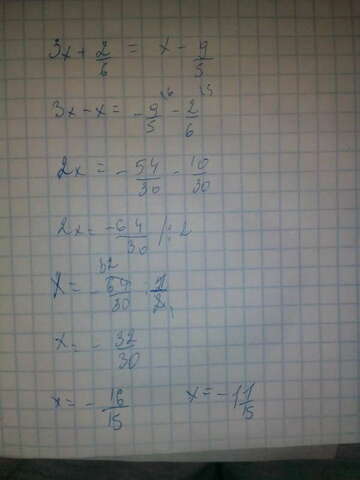 3x + 2/6 = x - 9/5
3x - x = - 9/5 - 2/6
2x = - 54/30 - 10/30
2x = - 64/30 /: 2
x = - 64/30 · 1/2
x = - 32/30
x = - 16/15 x = - 1 1/15